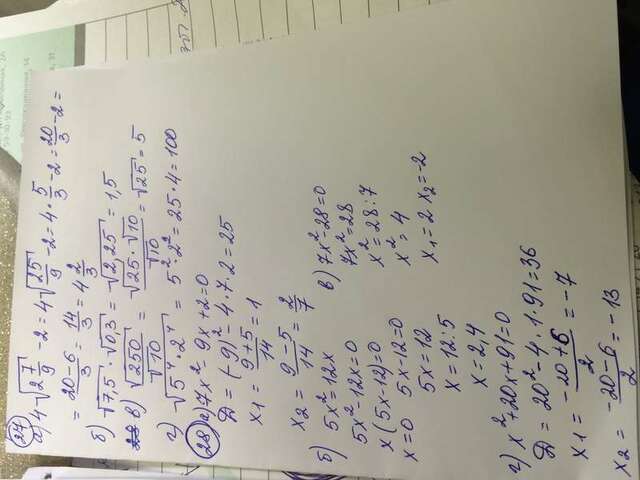 27
а) 4√(2 7/9) - 2 = 4√(25/9) - 2 = 4 · 5/3 - 2 = 20/3 - 2 =
= (20-6)/3 = 14/3 = 4 2/3
б) √7,5 · √0,3 = √2,25 = 1,5
в) √250/√10 = (√25 · √10)/√10 = √25 = 5
г) √(5⁴ · 2⁴) = 5² · 2² = 25 · 4 = 100
28 а) 7x² 9x + 2 = 0
D = (-9)² - 4 · 7 · 2 = 25
x1 = (9+5)/14 = 1
x2 = (9-5)/14 = 2/7
б) 5x² = 12x
5x² - 12x = 0
x (5x - 12) = 0
x = 0 5x - 12 = 0
5x = 12
x = 12 : 5
x = 2,4
в) 7x² - 28 = 0
7x² = 28
x² = 28 : 7
x² = 4
x1 = 2 x2 = -2
г) x² + 20x + 91 = 0
D = 20² - 4 · 1 · 91 = 36
x1 = (-20+6)/2 = -7
x2 = (-20-6)/2 = -13